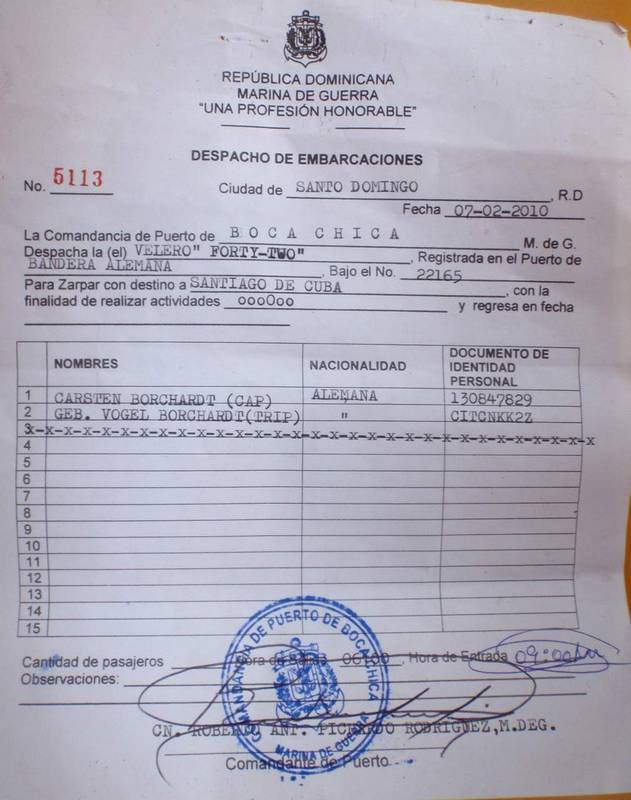 REPÚBLICA DOMINICANA
MARINA DE GUERRA
"UNA PROFESIÓN HONORABLE"
DESPACHO DE EMBARCACIONES
No. 5113 Ciudad de SANTO DOMINGO , R.D
Fecha 07-02-2010
La Comandancia de Puerto de BOCA CHICA M. de G.
Despacha la (el) VELERO" FORTY-TWO" , Registrada en el Puerto de
BANDERA ALEMANA , Bajo el No. 22165
Para Zarpar con destino a SANTIAGO DE CUBA , con la
finalidad de realizar actividades oooOoo y regresa en fecha
NOMBRES NACIONALIDAD DOCUMENTO DE IDENTIDAD PERSONAL
1 CARSTEN BORCHARDT (CAP) ALEMANA 130847829
2 GEB. VOGEL BORCHARDT(TRIP) " CITCNKK2Z
3 x-x-x-x-x-x-x-x-x-x-x-x-x-x-x-x-x-x-x-x-x-x-x-x-x-x-x-x-x-x-x
4
5
6
7
8
9
10
11
12
13
14
15
Cantidad de pasajeros Hora de Salida 06:00 , Hora de Entrada 09:00
Observaciones:
COMANDANCIA DE PUERTO DE BOCA CHICA
MARINA DE GUERRA
CN. ROBERTO ANT. PICHARDO RODRIGUEZ,M.DEG.
Comandante de Puerto